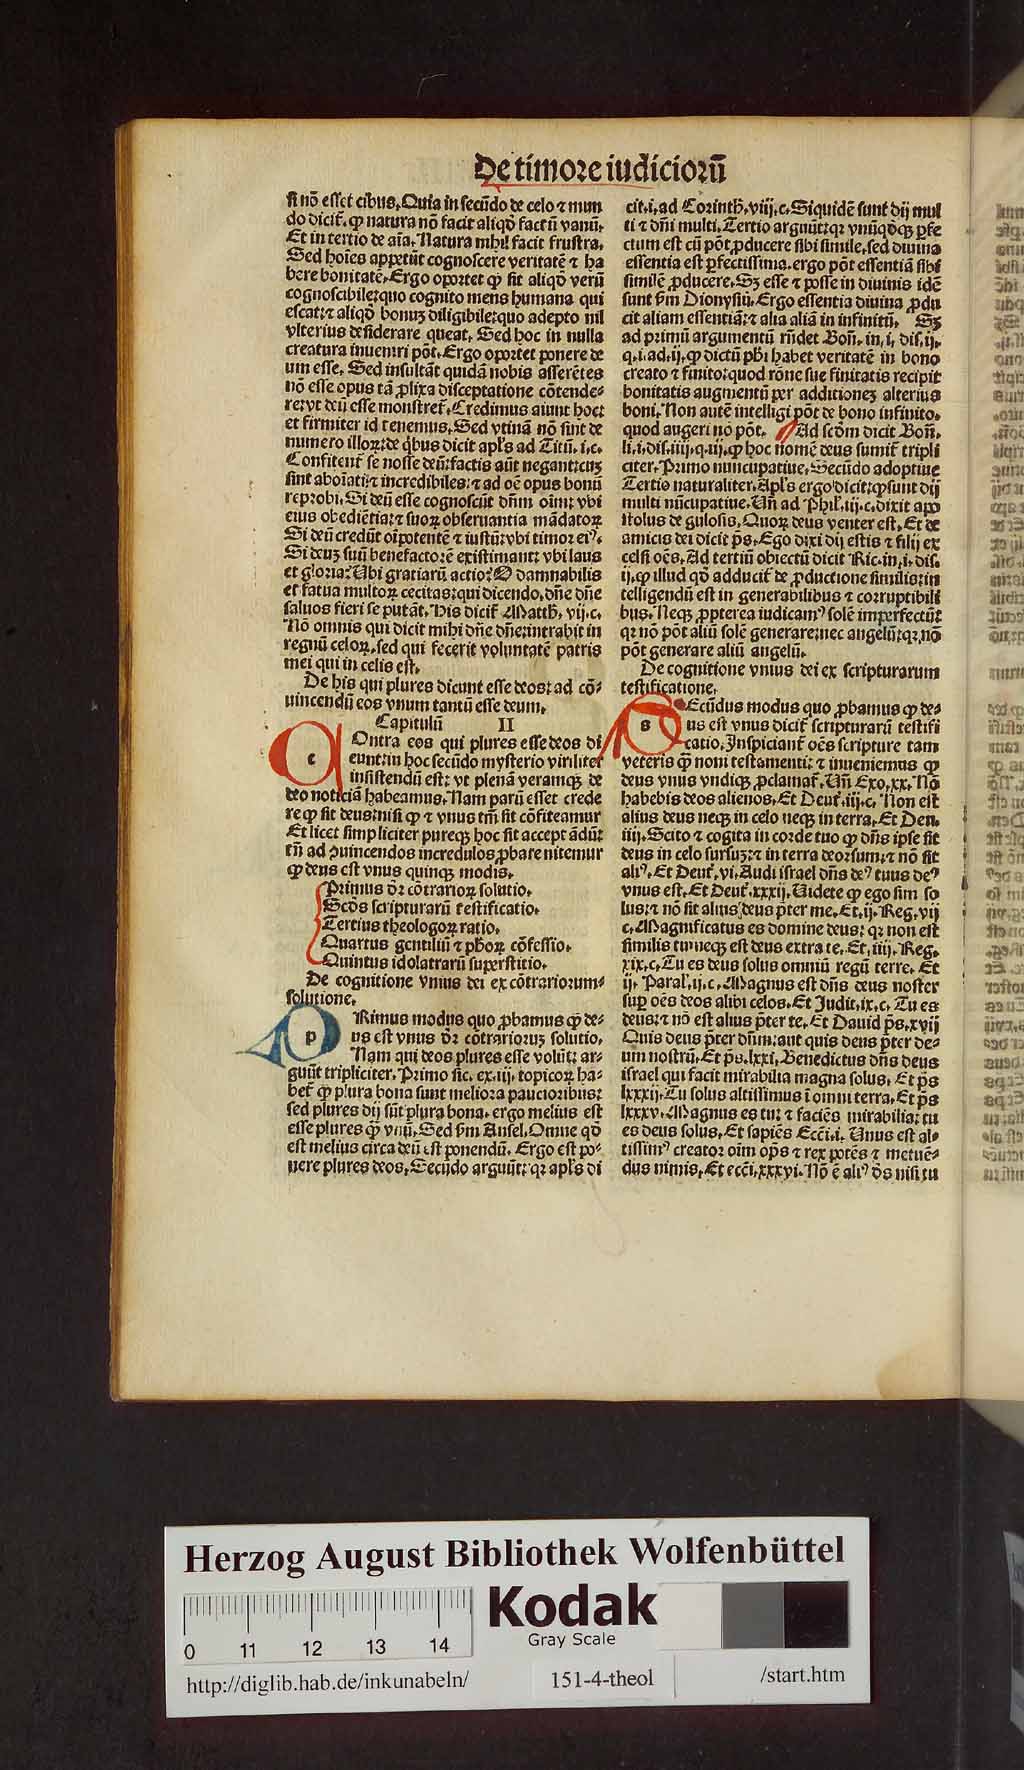 De timore iudiciorū
si nō esset cibus. Quia in secūdo de celo ⁊ mun
do dicit̄. ꝙ natura nō facit aliqđ factū vanū.
Et in tertio de aīa. Natura nihil facit frustra.
Sed hoīes appetūt cognoscere veritatē ⁊ ha
bere bonitatē. Ergo oportet ꝙ sit aliqđ verū
cognoscibile: quo cognito mens humana qui
escat: ⁊ aliqđ bonuꝫ diligibile: quo adepto nil
vlterius desiderare queat. Sed hoc in nulla
creatura inueniri pōt. Ergo oportet ponere de
um esse. Sed insultāt quidā nobis asserētes
nō esse opus tā ꝓlixa disceptatione cōtende-
re: vt deū esse monstret̄. Credimus aiunt hoc:
et firmiter id tenemus. Sed vtinā nō sint de
numero illoꝝ: de q̇bus dicit apl's ad Titū. i. c.
Confitent̄ se nosse deū: factis aūt negant: cuꝫ
sint aboīati: ⁊ incredibiles: ⁊ ad oē opus bonū
reprobi. Si deū esse cognoscūt dn̄m oīm: vbi
eius obediētia: ⁊ suoꝝ obseruantia mādatoꝝ
Si deū credūt oīpotentē ⁊ iustū: vbi timor eiꝰ.
Si deuꝫ suū benefactorē existimant: vbi laus
et gloria: Vbi gratiarū actio? O damnabilis
et fatua multoꝝ cecitas: qui dicendo. dn̄e dn̄e
saluos fieri se putāt. His dicit̄ Matth. vij. c.
Nō omnis qui dicit mihi dn̄e dn̄e: intrabit in
regnū celoꝝ. sed qui fecerit voluntatē patris
mei qui in celis est.
De his qui plures dicunt esse deos: ad cō-
uincendū eos vnum tantū esse deum.
Capitulū II
c Ontra eos qui plures esse deos di
cunt: in hoc secūdo mysterio viriliter
insistendū est: vt plenā veramqꝫ de
deo noticiā habeamus. Nam parū esset crede
re ꝙ sit deus: nisi ꝙ ⁊ vnus tm̄ sit cōfiteamur
Et licet simpliciter pureqꝫ hoc sit acceptādū:
tn̄ ad ꝯuincendos incredulos ꝓbare nitemur
ꝙ deus est vnus quinqꝫ modis.
Primus d̄r cōtrarioꝝ solutio.
Scd̄s scripturarū testificatio.
Tertius theologoꝝ ratio.
Quartus gentiliū ⁊ ph̄oꝝ cōfessio.
Quintus idolatrarū superstitio.
De cognitione vnius dei ex cōtrariorum
solutione.
p Rimus modus quo ꝓbamus ꝙ de-
us est vnus d̄r cōtrarioruꝫ solutio.
Nam qui deos plures esse volūt: ar-
guūt tripliciter. Primo sic. ex. iij. topicoꝝ ha-
bet̄ ꝙ plura bona sunt meliora paucioribus:
sed plures dij sūt plura bona. ergo melius est
esse plures ꝙ̄ vnū. Sed s̄m Ansel. Omne qđ
est melius circa deū est ponendū. Ergo est po-
nere plures deos. Secūdo arguūt: qꝛ apl's di
cit. i. ad Corinth. viij. c. Siquidē sunt dij mul
ti ⁊ dn̄i multi. Tertio arguūt: qꝛ vnūqđqꝫ ꝑfe
ctum est cū pōt ꝓducere sibi simile. sed diuina
essentia est ꝑfectissima. ergo pōt essentiā sibi
similē ꝓducere. Sꝫ esse ⁊ posse in diuinis idē
sunt s̄m Dionysiū. Ergo essentia diuina ꝓdu
cit aliam essentiā: ⁊ alia aliā in infinitū. Sꝫ
ad primū argumentū rn̄det Bon̄. in. i. dis. ij.
q. i. ad. ij. ꝙ dictū ph̄i habet veritatē in bono
creato ⁊ finito: quod rōne sue finitatis recipit
bonitatis augmentū per additioneꝫ alterius
boni. Non autē intelligi pōt de bono infinito.
quod augeri nō pōt. Ad scd̄m dicit Bon̄.
li. i. dis. iiij. q. iij. ꝙ hoc nomē deus sumit̄ tripli
citer. Primo nuncupatiue. Secūdo adoptiue
Tertio naturaliter. Apl's ergo dicit: ꝙ sunt dij
multi nūcupatiue. Vn̄ ad Phil. iij. c. dixit apo
stolus de gulosis. Quoꝝ deus venter est. Et de
amicis dei dicit p̄s. Ego dixi dij estis ⁊ filij ex
celsi oēs. Ad tertiū obiectū dicit Ric. in. i. dis.
ij. ꝙ illud qđ adducit̄ de ꝓductione similis: in
telligendū est in generabilibus ⁊ corruptibili
bus. Neqꝫ ꝓpterea iudicamꝰ solē imperfectū:
qꝛ nō pōt aliū solē generare: nec angelū: qꝛ nō
pōt generare aliū angelū.
De cognitione vnius dei ex scripturarum
testificatione.
s Ecūdus modus quo ꝓbamus ꝙ de-
us est vnus dicit̄ scripturarū testifi
catio. Inspiciant̄ oēs scripture tam
veteris ꝙ̄ noui testamenti: ⁊ inueniemus ꝙ
deus vnus vndiqꝫ ꝓclamat̄. Vn̄ Exo. xx. Nō
habebis deos alienos. Et Deut̄. iij. c. Non est
alius deus neqꝫ in celo neqꝫ in terra. Et Deu.
iiij. Scito ⁊ cogita in corde tuo ꝙ dn̄s ipse sit
deus in celo sursuꝫ: ⁊ in terra deorsum: ⁊ nō sit
aliꝰ. Et Deut̄. vi. Audi israel dn̄s deꝰ tuus deꝰ
vnus est. Et Deut̄. xxxij. Videte ꝙ ego sim so
lus: ⁊ nō sit alius deus p̄ter me. Et. ij. Reg. vij
c. Magnificatus es domine deus: qꝛ non est
similis tui: neqꝫ est deus extra te. Et. iiij. Reg.
xix. c. Tu es deus solus omniū regū terre. Et
ij. Paral. ij. c. Magnus est dn̄s deus noster
suꝑ oēs deos alibi celos. Et Judit. ix. c. Tu es
deus: ⁊ nō est alius p̄ter te. Et Dauid p̄s. xvij
Quis deus p̄ter dn̄m: aut quis deus p̄ter de-
um nostrū. Et p̄s. lxxi. Benedictus dn̄s deus
israel qui facit mirabilia magna solus. Et p̄s
lxxxij. Tu solus altissimus ī omni terra. Et p̄s
lxxxv. Magnus es tu: ⁊ faciēs mirabilia: tu
es deus solus. Et sapiēs Ecc̄i. i. Vnus est al-
tissimꝰ creator oīm op̄s ⁊ rex potēs ⁊ metuē-
dus nimis. Et ecc̄i. xxxvi. Nō ē aliꝰ d̄s nisi tu
Herzog August Bibliothek Wolfenbüttel
Kodak
Gray Scale
0 11 12 13 14
http://diglib.hab.de/inkunabeln/ 151-4-theol /start.htm